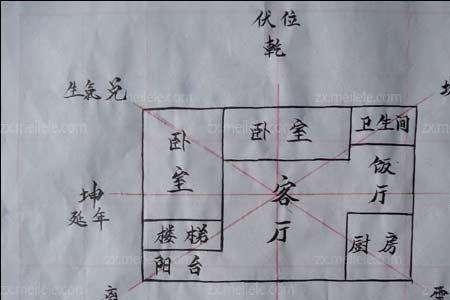 伏位
乾
生氣兑
卧室
卧室
卫生间
饭厅
客厅
坤
延年
楼梯
阳台
厨房
离
zx.meilele.com
zx.meilele.com
zx.meilele.com
zx.meilele.com